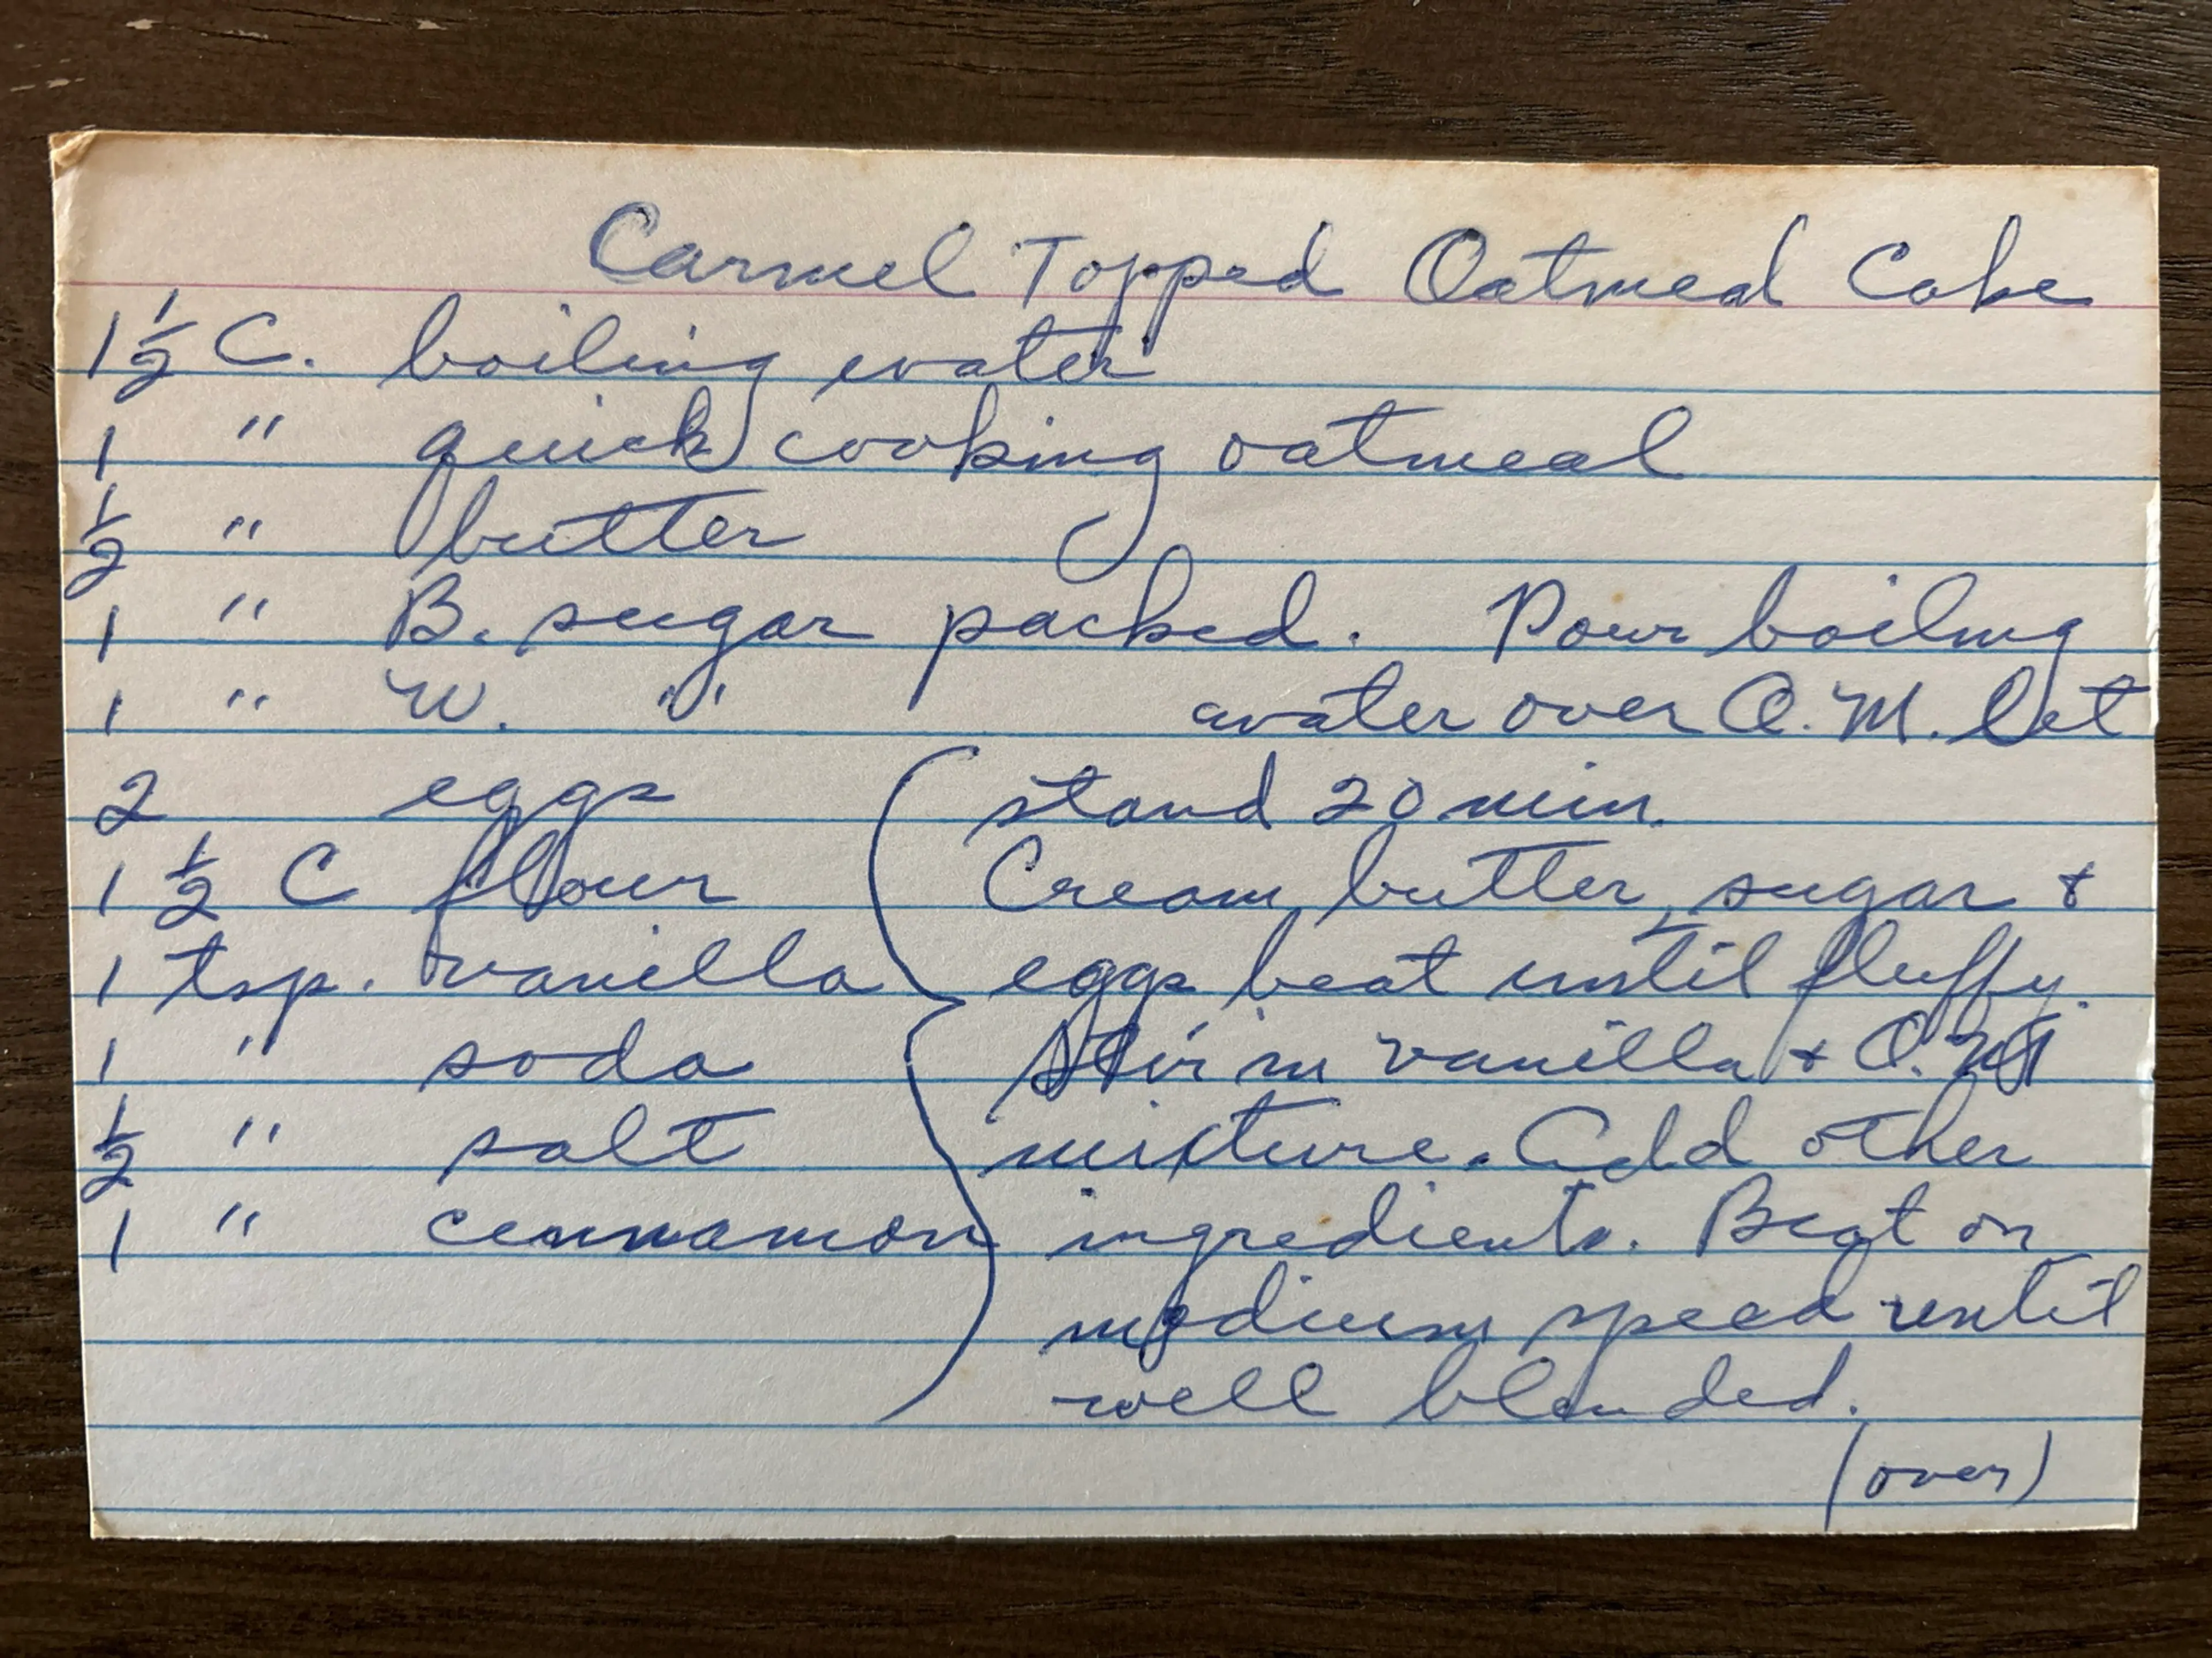 Carmel Topped Oatmeal Cake
1 1/2 C. boiling water
1 " quick cooking oatmeal
1/2 " butter
1 " B. sugar packed. Pour boiling
1 " W. " water over O.M. let
2 eggs stand 20 min.
1 1/2 C flour Cream butter, sugar +
1 tsp. vanilla eggs beat until fluffy.
1 " soda Stir in vanilla + O.M
1/2 " salt mixture. Add other
1 " cennamon ingredients. Beat on
medium speed until
well blended.
(over)